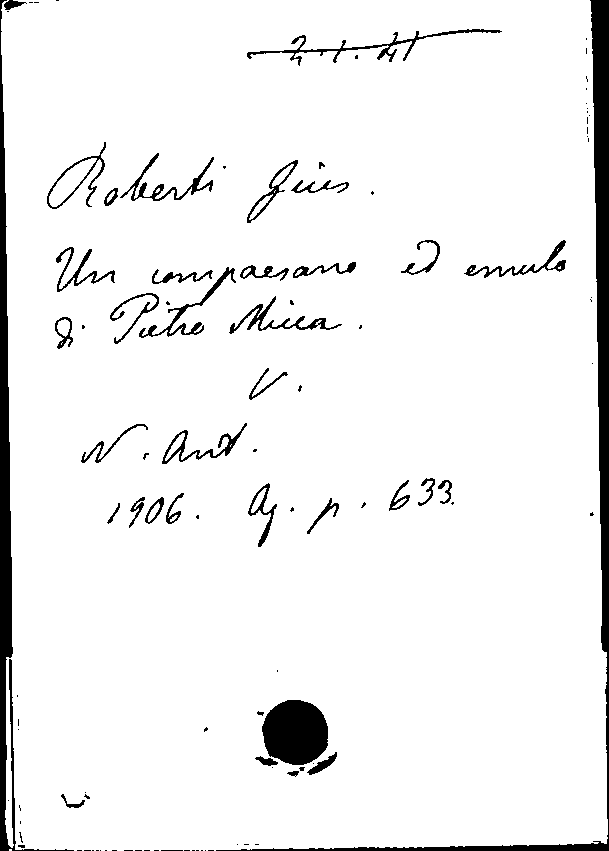 2.1.41
Roberti Gius.
Un compaesano ed emulo
di Pietro Micca.
V.
N. Ant.
1906. Ag. p. 633.